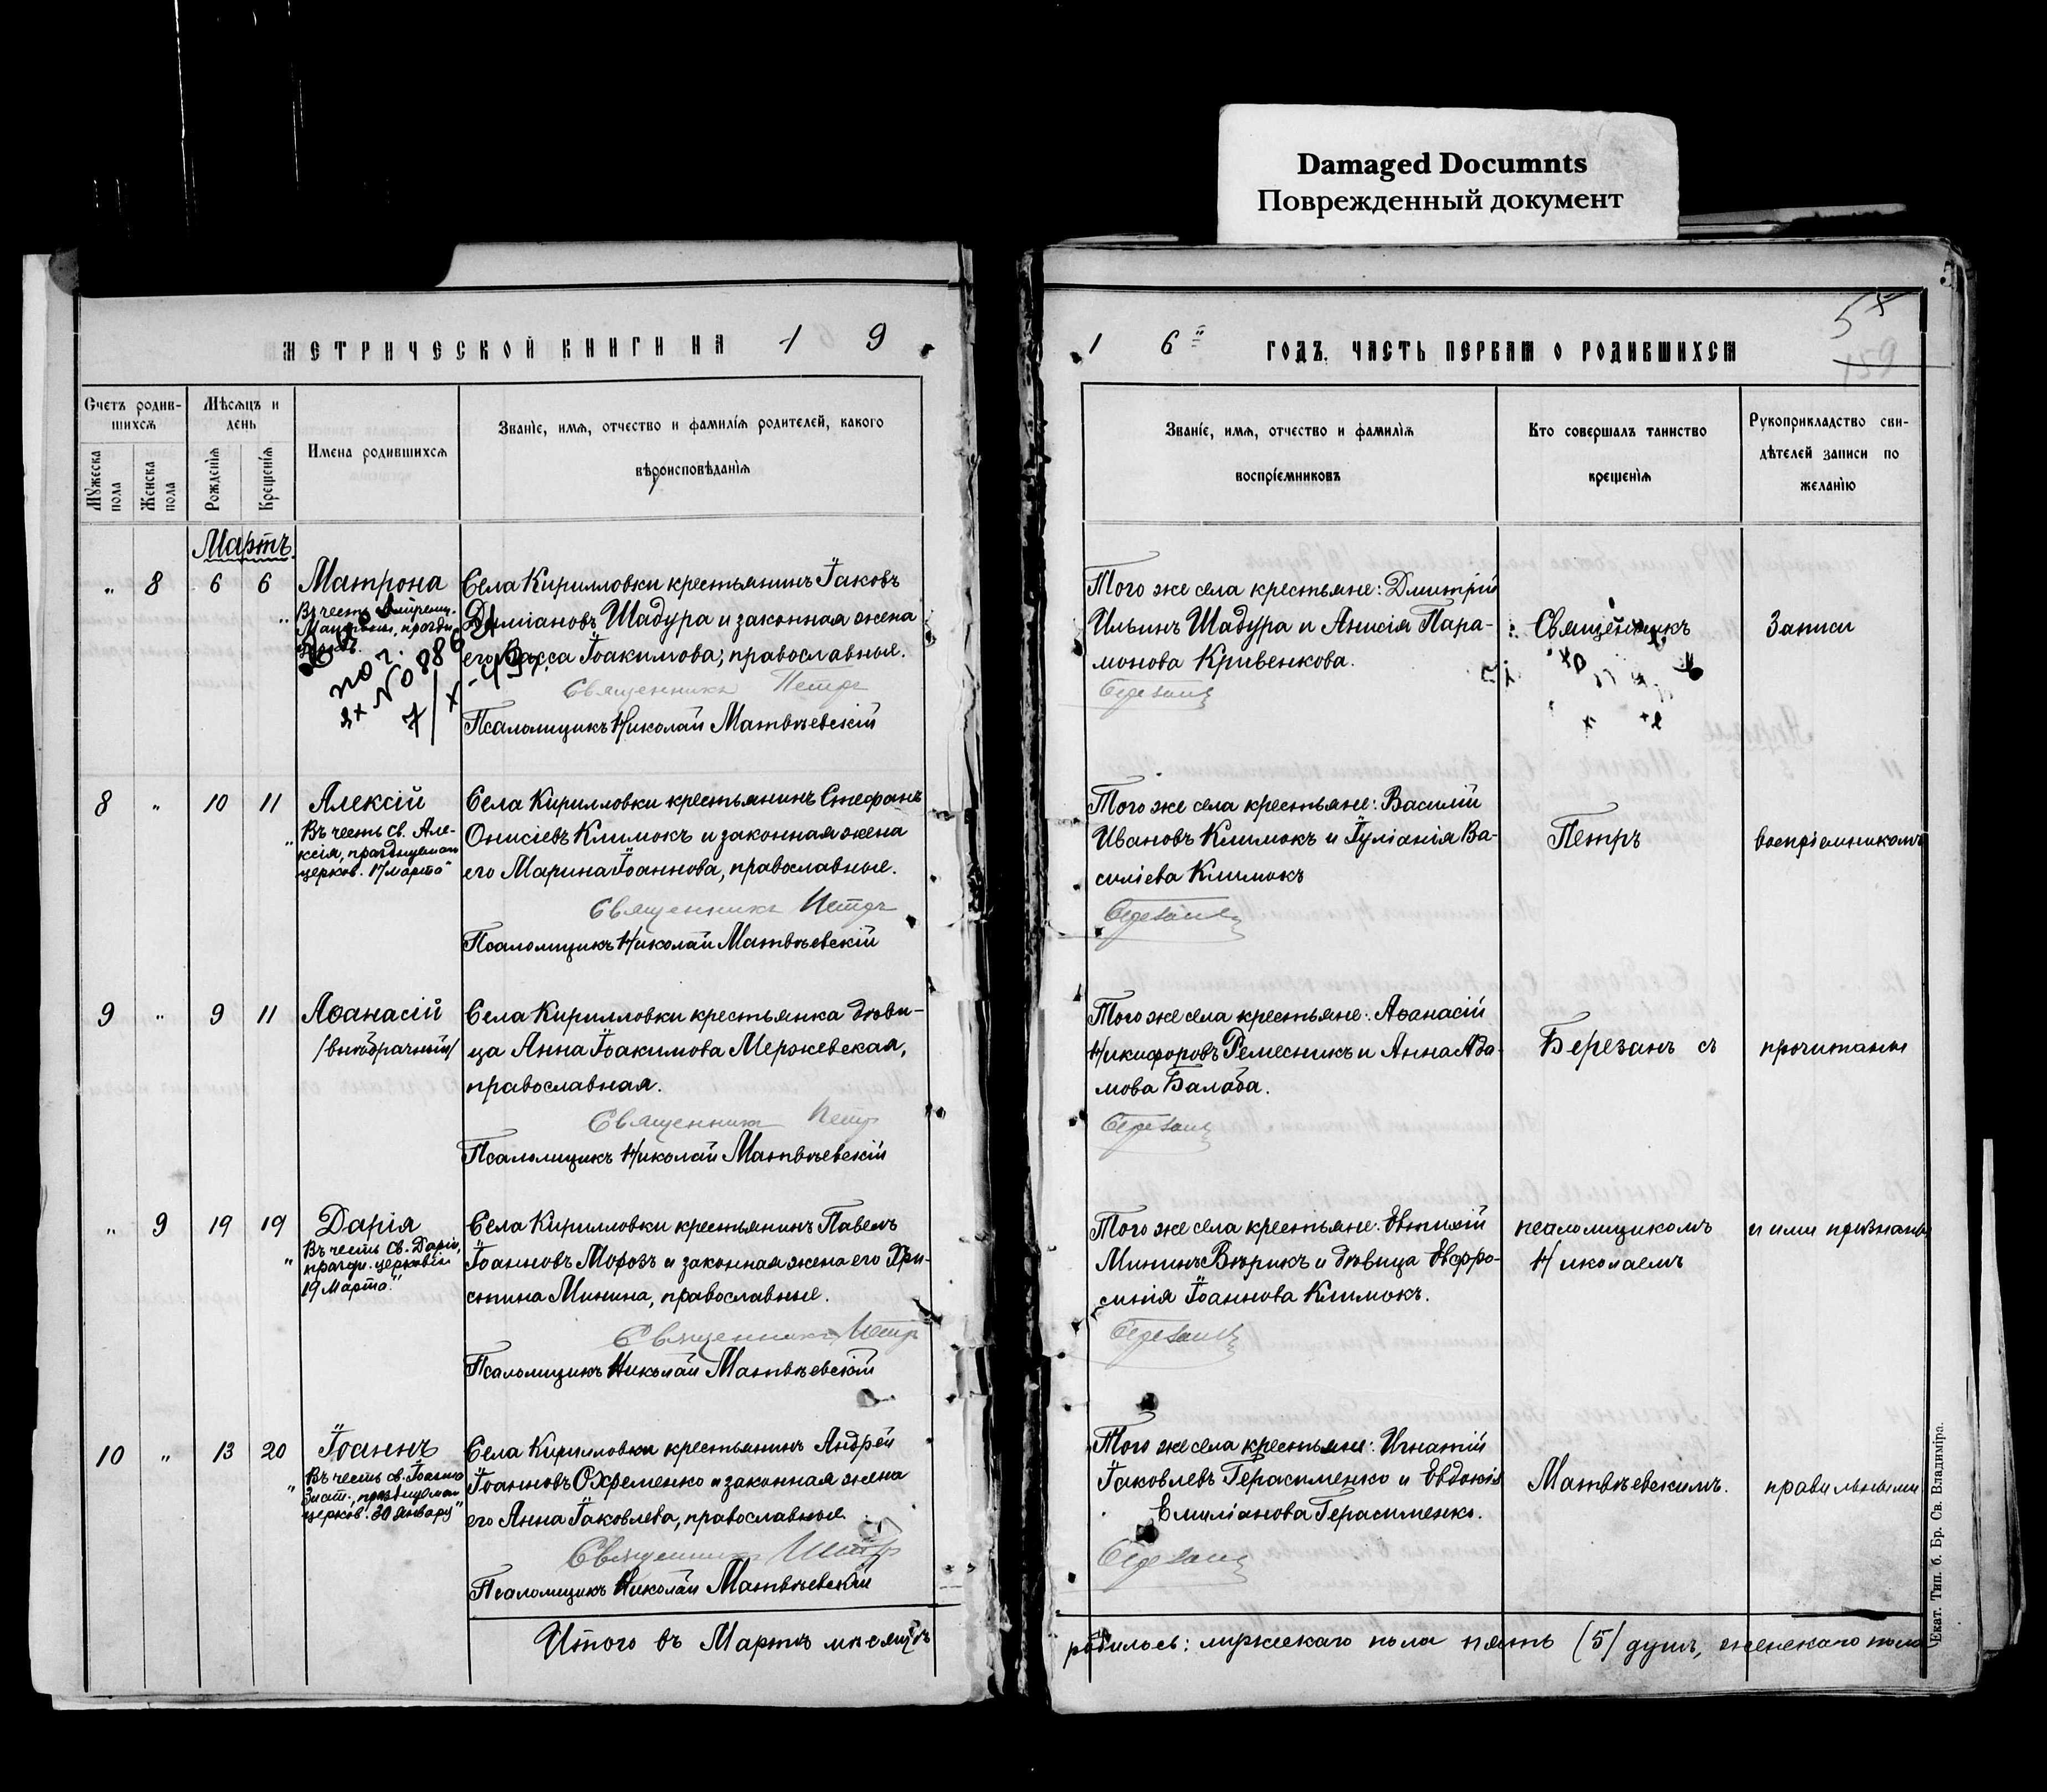 Damaged Documnts
Поврежденный документ
МЕТРИЧЕСКОЙ КНИГИ НА 1 9
Счетъ родив-
шихся
Мѣсяцъ и
день
Имена родившихся
Званіе, имя, отчество и фамилія родителей, какого
вѣроисповѣданія
Мужеска
пола
Женска
пола
Рожденія
Крещенія
Мартъ.
„ 8 6 6 Матрона
Села Кирилловки крестьянинъ Іаковъ
Даміановъ Шадура и законная жена
его Васса Іоакимова; православные.
Священникъ Петръ
Псаломщикъ Николай Матвѣевскій
8 „ 10 11 Алексій
Въ честь св. Але-
ксія, празднуемаго
церков. 17 марта"
Села Кирилловки крестьянинъ Стефанъ
Онисіевъ Климокъ и законная жена
его Марина Іоаннова, православные.
Священникъ Петръ
Псаломщикъ Николай Матвѣевскій
9 „ 9 11 Аѳанасій
/внѣбрачный/
Села Кирилловки крестьянка дѣви-
ца Анна Іоакимова Мержевская,
православная.
Священникъ Петръ
Псаломщикъ Николай Матвѣевскій
„ 9 19 19 Дарія
Въ честь св. Даріи,
праздн. церковію
19 Марта."
Села Кирилловки крестьянинъ Павелъ
Іоанновъ Морозъ и законная жена его Хри-
стина Минина, православные.
Священникъ Петръ
Псаломщикъ Николай Матвѣевскій
10 „ 13 20 Іоаннъ
Въ честь св. Іоанна
Злат., празднуемаго
церков. 30 января"
Села Кирилловки крестьянинъ Андрей
Іоанновъ Охременко и законная жена
его Анна Іаковлева, православные.
Священникъ Петръ
Псаломщикъ Николай Матвѣевскій
Итого въ Мартѣ мѣсяцѣ
1 6й ГОДЪ. ЧАСТЬ ПЕРВАЯ О РОДИВШИХСЯ
159
Званіе, имя, отчество и фамилія
воспріемниковъ
Кто совершалъ таинство
крещенія
Рукоприкладство сви-
дѣтелей записи по
желанію
Того же села крестьяне: Дмитрій
Ильинъ Шадура и Анисія Пара-
монова Кривенкова.
Березанъ
Того же села крестьяне: Василій
Ивановъ Климокъ и Іуліанія Ва-
силіева Климокъ
Березанъ
Того же села крестьяне: Аѳанасій
Никифоровъ Ремесникъ и Анна Ада-
мова Балаба.
Березанъ
Того же села крестьяне: Евтихій
Мининъ Вѣрикъ и дѣвица Евфро-
синія Іоаннова Климокъ.
Березанъ
Того же села крестьяне: Игнатій
Іаковлевъ Герасименко и Евдокія
Емиліанова Герасименко.
Березанъ
Священникъ
Петръ
Березанъ съ
псаломщикомъ
Николаемъ
Матвѣевскимъ.
Записи
воспріемникомъ
прочитаны
и ими признаны
правильными
родилось: мужескаго пола пять (5) душъ, женскаго пола
Екат. Тип. б. Бр. Св. Владиміра.